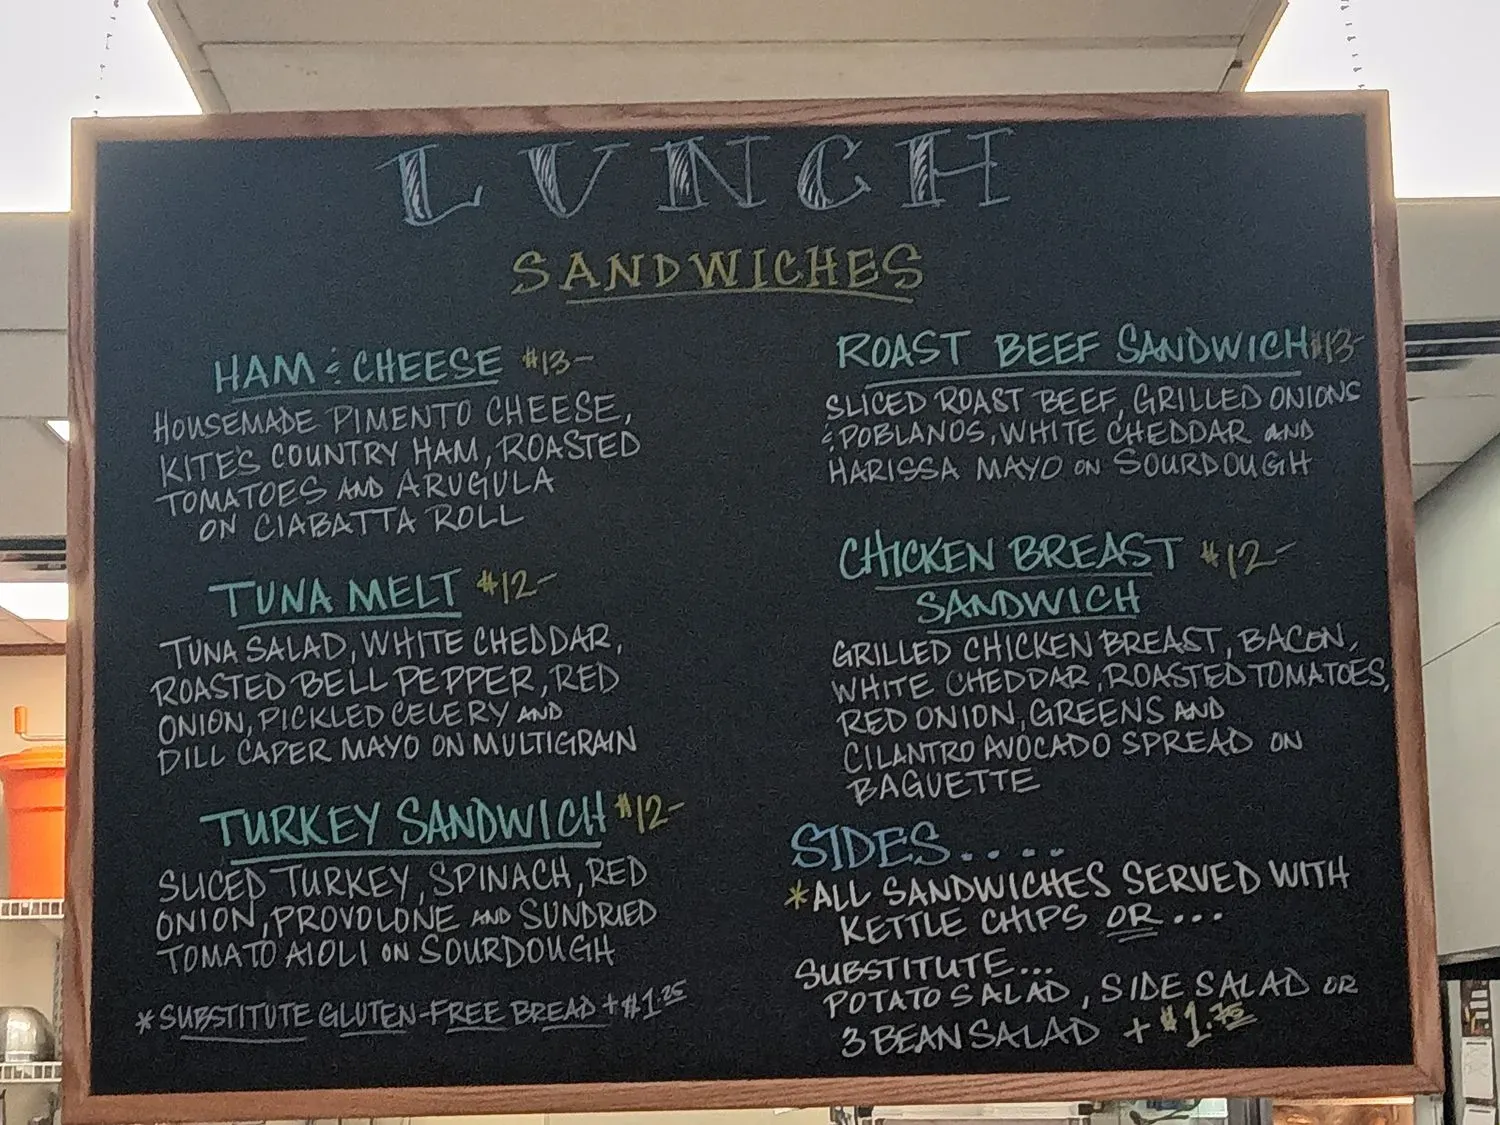 LUNCH
SANDWICHES
HAM & CHEESE $13-
HOUSEMADE PIMENTO CHEESE,
KITE'S COUNTRY HAM, ROASTED
TOMATOES AND ARUGULA
ON CIABATTA ROLL
TUNA MELT $12-
TUNA SALAD, WHITE CHEDDAR,
ROASTED BELL PEPPER, RED
ONION, PICKLED CELERY AND
DILL CAPER MAYO ON MULTIGRAIN
TURKEY SANDWICH $12-
SLICED TURKEY, SPINACH, RED
ONION, PROVOLONE AND SUNDRIED
TOMATO AIOLI ON SOURDOUGH
*SUBSTITUTE GLUTEN-FREE BREAD +$1.25
ROAST BEEF SANDWICH $13-
SLICED ROAST BEEF, GRILLED ONIONS
& POBLANOS, WHITE CHEDDAR AND
HARISSA MAYO ON SOURDOUGH
CHICKEN BREAST $12-
SANDWICH
GRILLED CHICKEN BREAST, BACON,
WHITE CHEDDAR, ROASTED TOMATOES,
RED ONION, GREENS AND
CILANTRO AVOCADO SPREAD ON
BAGUETTE
SIDES....
*ALL SANDWICHES SERVED WITH
KETTLE CHIPS OR...
SUBSTITUTE...
POTATO SALAD, SIDE SALAD OR
3 BEAN SALAD + $1.75